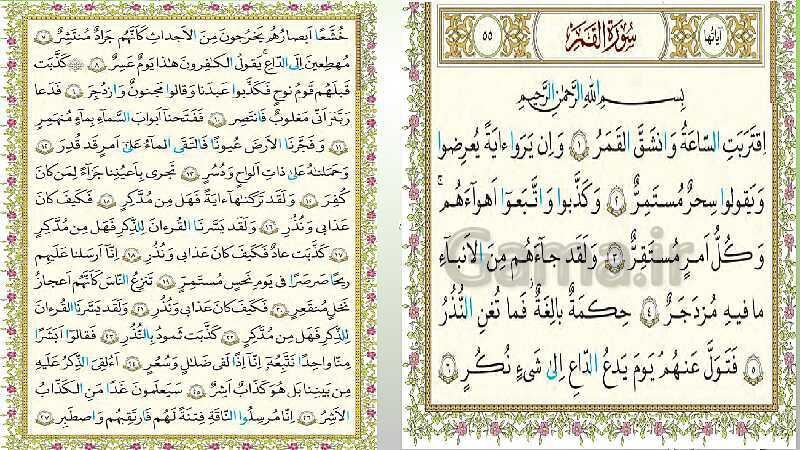 آیاتها
سورة القمر
٥٥
بِسمِ اللهِ الرَّحمٰنِ الرَّحيمِ
اِقتَرَبَتِ السّاعَةُ وَ انشَقَّ القَمَرُ ١ وَ اِن يَرَوا ءايَةً يُعرِضوا
وَ يَقولوا سِحرٌ مُستَمِرٌّ ٢ وَ كَذَّبوا وَ اتَّبَعوا اَهواءَهُم ۚ
وَ كُلُّ اَمرٍ مُستَقِرٌّ ٣ وَ لَقَد جاءَهُم مِنَ الاَنباءِ
ما فيهِ مُزدَجَرٌ ٤ حِكمَةٌ بالِغَةٌ ۖ فَما تُغنِ النُّذُرُ
٥ فَتَوَلَّ عَنهُم ۘ يَومَ يَدعُ الدّاعِ اِلىٰ شَیءٍ نُكُرٍ ٦
خُشَّعًا اَبصارُهُم يَخرُجونَ مِنَ الاَجداثِ كَاَنَّهُم جَرادٌ مُنتَشِرٌ ٧
مُهطِعينَ اِلَی الدّاعِ ۖ يَقولُ الكٰفِرونَ هٰذا يَومٌ عَسِرٌ ٨ كَذَّبَت
قَبلَهُم قَومُ نوحٍ فَكَذَّبوا عَبدَنا وَ قالوا مَجنونٌ وَ ازدُجِرَ ٩ فَدَعا
رَبَّهُ اَنّی مَغلوبٌ فَانتَصِر ١٠ فَفَتَحنا اَبوابَ السَّماءِ بِماءٍ مُنهَمِرٍ
١١ وَ فَجَّرنَا الاَرضَ عُيونًا فَالتَقَی الماءُ عَلىٰ اَمرٍ قَد قُدِرَ ١٢
وَ حَمَلناهُ عَلىٰ ذاتِ اَلواحٍ وَ دُسُرٍ ١٣ تَجری بِاَعيُنِنا جَزاءً لِمَن كانَ
كُفِرَ ١٤ وَ لَقَد تَرَكناها ءايَةً فَهَل مِن مُدَّكِرٍ ١٥ فَكَيفَ كانَ
عَذابی وَ نُذُرِ ١٦ وَ لَقَد يَسَّرنَا القُرءانَ لِلذِّكرِ فَهَل مِن مُدَّكِرٍ
١٧ كَذَّبَت عادٌ فَكَيفَ كانَ عَذابی وَ نُذُرِ ١٨ اِنّا اَرسَلنا عَلَيهِم
ريحًا صَرصَرًا فی يَومِ نَحسٍ مُستَمِرٍّ ١٩ تَنزِعُ النّاسَ كَاَنَّهُم اَعجازُ
نَخلٍ مُنقَعِرٍ ٢٠ فَكَيفَ كانَ عَذابی وَ نُذُرِ ٢١ وَ لَقَد يَسَّرنَا القُرءانَ
لِلذِّكرِ فَهَل مِن مُدَّكِرٍ ٢٢ كَذَّبَت ثَمودُ بِالنُّذُرِ ٢٣ فَقالوا اَبَشَرًا
مِنّا واحِدًا نَتَّبِعُهُ اِنّا اِذًا لَفی ضَلالٍ وَ سُعُرٍ ٢٤ اَءُلقِیَ الذِّكرُ عَلَيهِ
مِن بَينِنا بَل هُوَ كَذّابٌ اَشِرٌ ٢٥ سَيَعلَمونَ غَدًا مَنِ الكَذّابُ
الاَشِرُ ٢٦ اِنّا مُرسِلُوا النّاقَةِ فِتنَةً لَهُم فَارتَقِبهُم وَ اصطَبِر ٢٧
Gama.ir